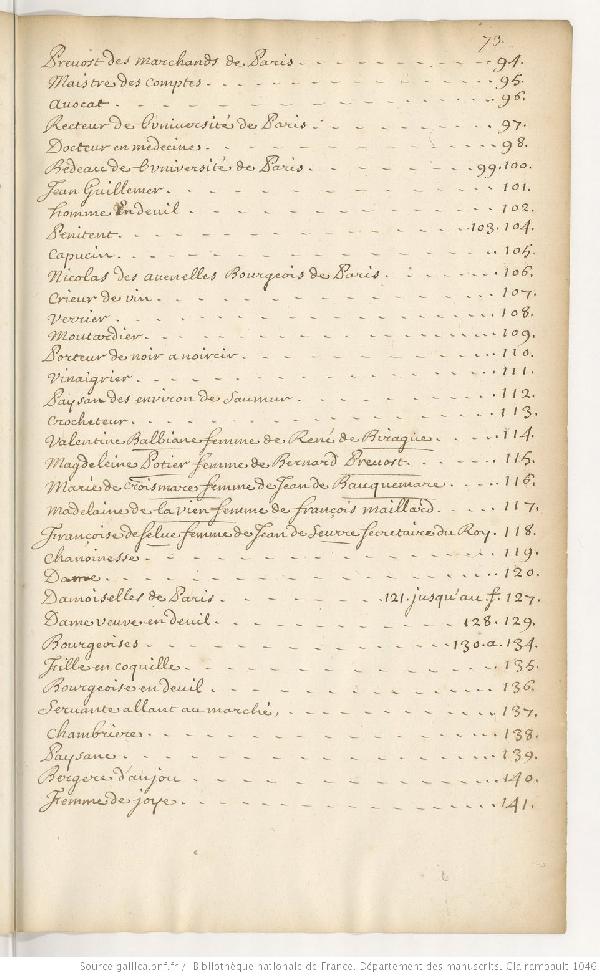 73.
Prevost des marchands de Paris - - - - - - - - 94.
Maistre des comptes - - - - - - - - 95.
Avocat - - - - - - - - 96.
Recteur de l'université de Paris - - - - - - - - 97.
Docteur en medecine - - - - - - - - 98.
Bedeau de l'université de Paris - - - - - - - - 99.100.
Jean Guillemer - - - - - - - - 101.
homme en deuil - - - - - - - - 102.
Penitent - - - - - - - - 103.104.
Capucin - - - - - - - - 105.
Nicolas des avenelles Bourgeois de Paris - - - - 106.
Crieur de vin - - - - - - - - 107.
Verrier - - - - - - - - 108.
Moutardier - - - - - - - - 109.
Porteur de noir a noircir - - - - - - - - 110.
Vinaigrier - - - - - - - - 111.
Paysan des environ de Saumur - - - - - - - - 112.
Crocheteur - - - - - - - - 113.
Valentine Balbiane femme de René de Birague - - - 114.
Magdeleine Potier femme de Bernard Prevost - - - 115.
Marie de Croismares femme de Jean de Bauquemare - - - 116.
Madelaine de la vien femme de françois maillard - - - 117.
Françoise de Selue femme de Jean de Seurre secretaire du Roy. 118.
Chanoinesse - - - - - - - - 119.
Dame - - - - - - - - 120.
Damoiselles de Paris - - - - 121. jusqu'au f. 127.
Dame veuve en deuil - - - - - - - - 128.129.
Bourgeoises - - - - - - - - 130.a.134.
Fille en coquille - - - - - - - - 135.
Bourgeoise en deuil - - - - - - - - 136.
Servante allant au marché, - - - - - - - - 137.
Chambriere - - - - - - - - 138.
Paysane - - - - - - - - 139.
Bergere d'anjou - - - - - - - - 140.
Femme de joye - - - - - - - - 141.
Source gallica.bnf.fr / Bibliothèque nationale de France. Département des manuscrits. Clairambault 1046